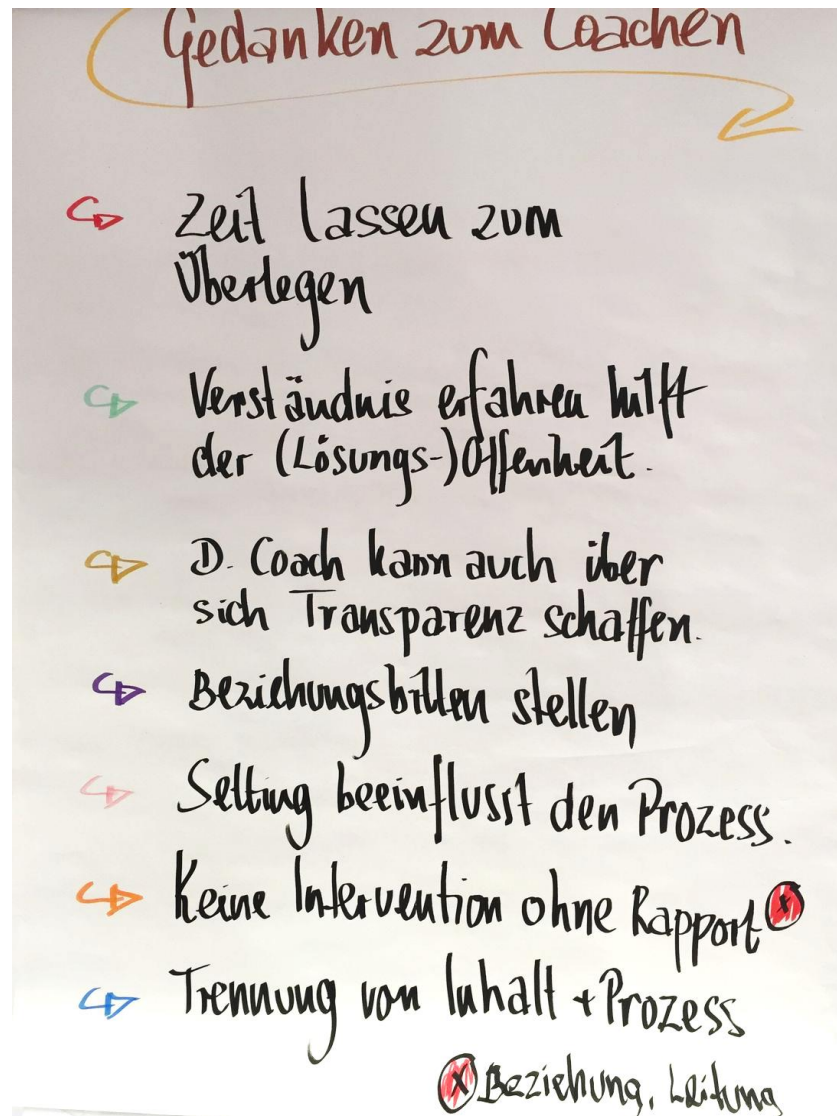 Gedanken zum Coachen
Zeit lassen zum
Überlegen
Verständnis erfahren hilft
der (Lösungs-)Offenheit.
D. Coach kann auch über
sich Transparenz schaffen.
Beziehungsbitten stellen
Setting beeinflusst den Prozess.
Keine Intervention ohne Rapport (x)
Trennung von Inhalt + Prozess
(x) Beziehung, Leitung